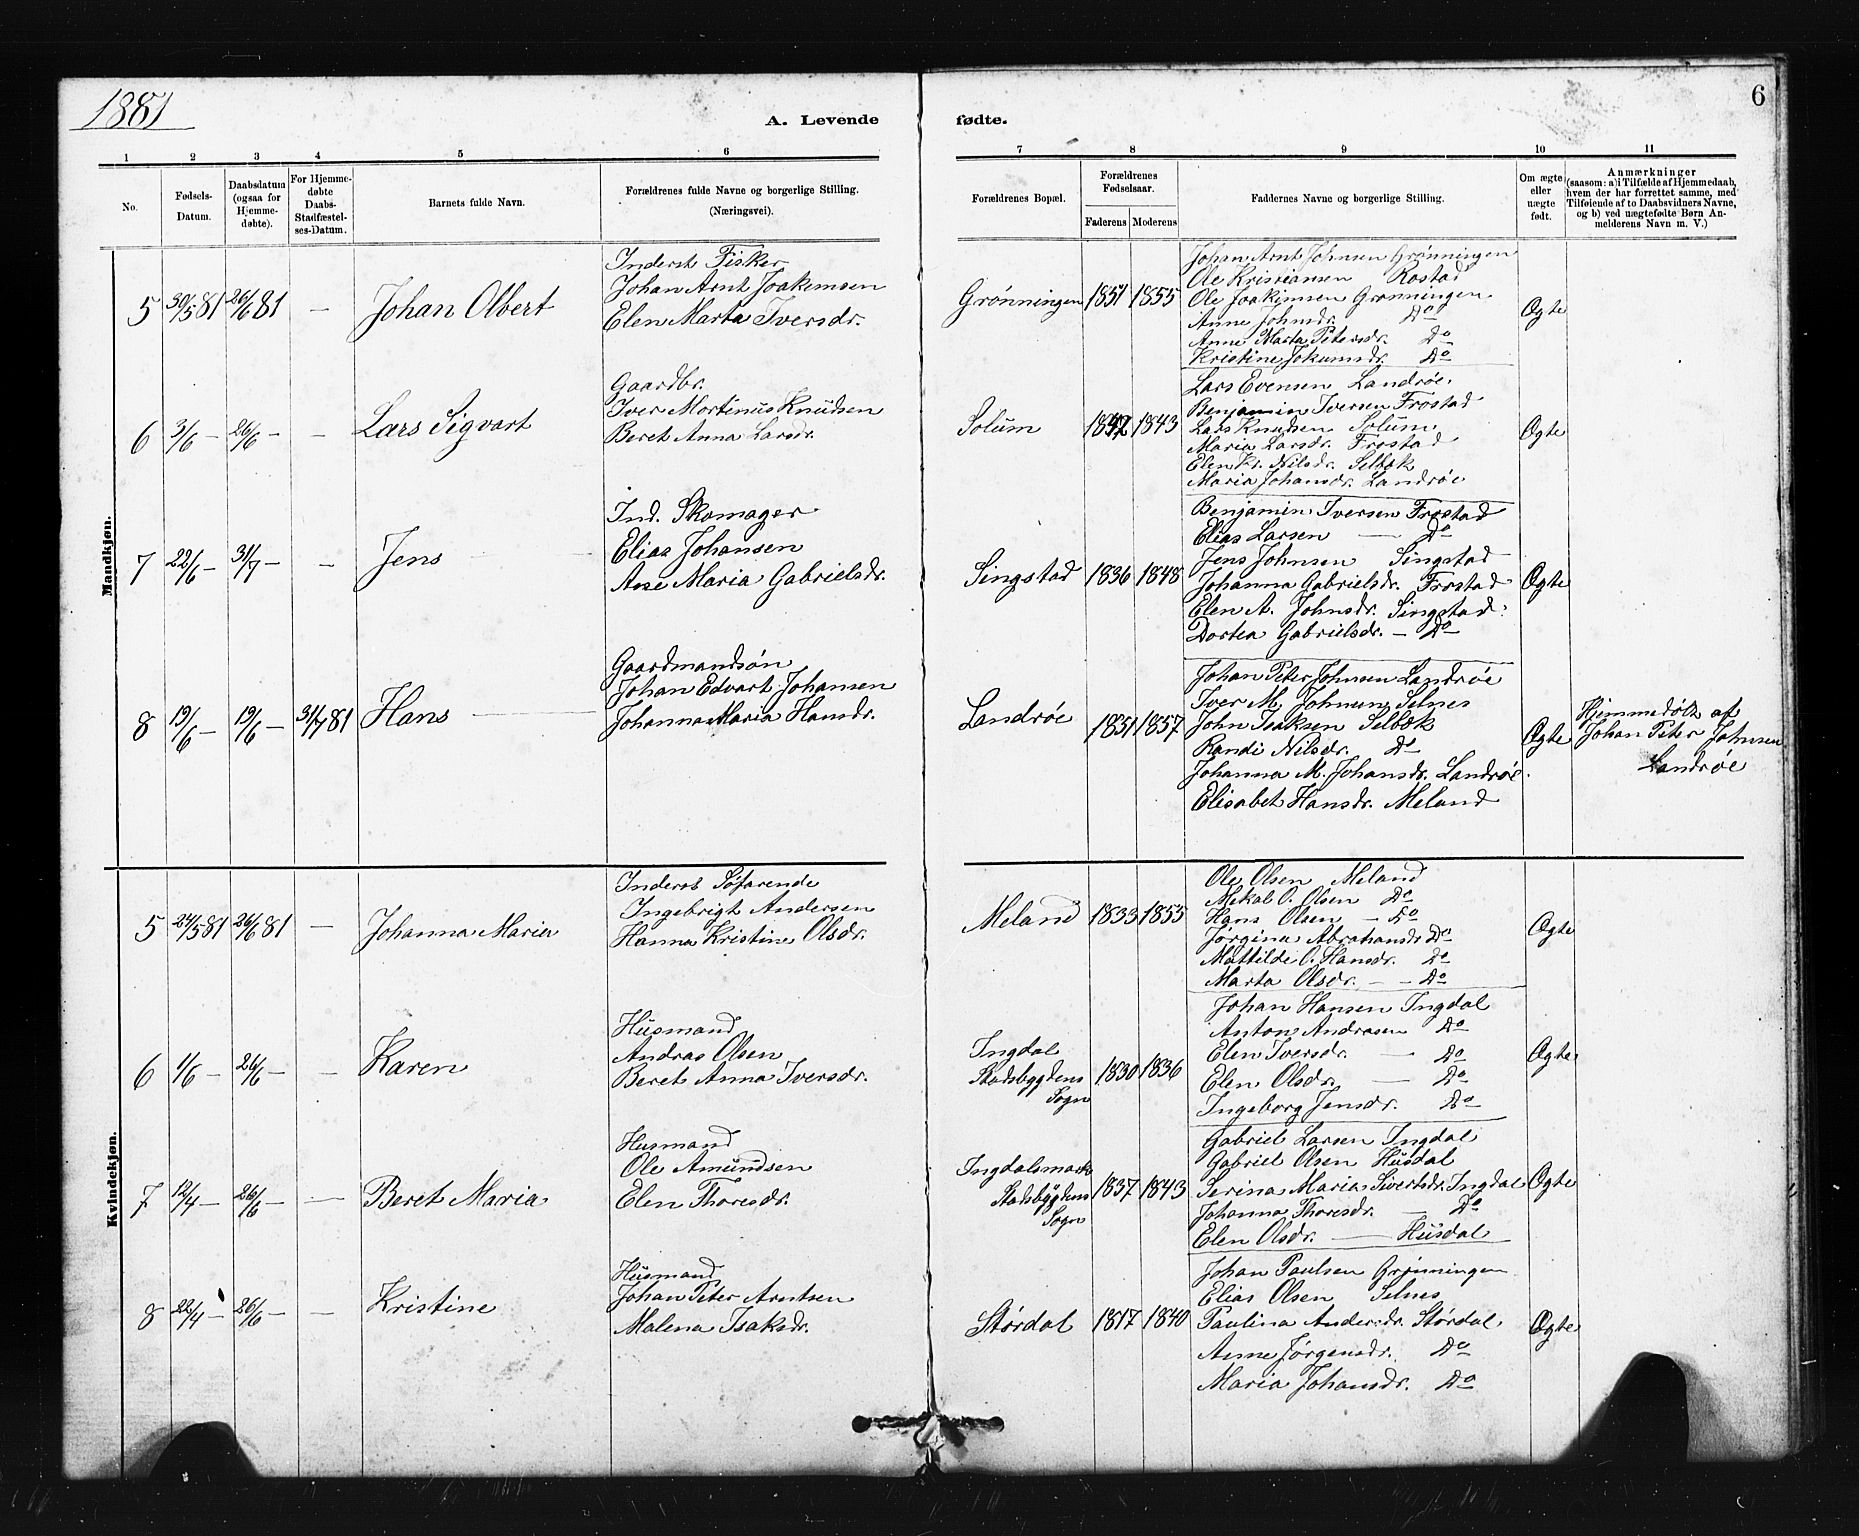 1881
6
A. Levende fødte.
1 2 3 4 5 6 7 8 9 10 11
No.
Fødsels-
Datum.
Daabsdatum
(ogsaa for
Hjemme-
døbte).
For Hjemme-
døbte
Daabs-
Stadfæstel-
ses-Datum.
Barnets fulde Navn.
Forældrenes fulde Navne og borgerlige Stilling.
(Næringsvei).
Forældrenes Bopæl.
Forældrenes
Fødselsaar.
Faderens Moderens
Faddernes Navne og borgerlige Stilling.
Om ægte
eller
uægte
født.
Anmærkninger
(saasom: a) i Tilfælde af Hjemmedaab,
hvem der har forrettet samme, med
Tilføiende af to Daabsvidners Navne,
og b) ved uægtefødte Børn An-
melderens Navn m. V.)
Mandkjøn.
5 30/5 81 26/6 81 — Johan Olbert
Inderst Fisker
Johan Arnt Joakimsen
Elen Marta Iversdr.
Grønningen 1851 1855
Johan Arnt Johnsen Grønningen
Ole Kristiansen Rostad
Ole Joakimsen Grønningen.
Anne Johnsdr. Do
Anne Marta Petersdr. Do
Kristine Jokumsdr. Do
Ægte
6 3/6 — 26/6 — — Lars Sigvart
Gaardbr.
Iver Mortinus Knudsen
Beret Anna Larsdr.
Solum 1843
Lars Evensen Landrøe.
Benjamin Iversen Frostad
Lars Knudsen Solum,
Maria Larsdr. Frostad
Elen Kr. Nilsdr. Selbæk
Maria Johansdr. Landrøe
Ægte
7 22/6 — 31/7 — — Jens
Ind. Skomager
Elias Johansen
Ane Maria Gabrielsdr.
Singstad 1836 1848
Benjamin Iversen Frostad
Elias Larsen — Do
Jens Johnsen Singstad
Johanna Gabrielsdr. Frostad
Elen A. Johnsdr. Singstad
Dortea Gabrielsdr. — Do
Ægte
8 19/6 — 19/6 — 31/7 81 Hans
Gaardmandsøn
Johan Edvart Johansen
Johanna Maria Hansdr.
Landrøe 1851 1857
Johan Peter Johnsen Landrøe
Iver M. Johnsen Selnes
John Isaksen Selbæk
Randi Nilsdr. Do
Johanna M. Johansdr. Landrøe.
Elisabet Hansdr. Meland
Ægte
Hjemmedøbt af
Johan Peter Johnsen
Landrøe
Kvindekjøn.
5 24/5 81 26/6 81 — Johanna Maria
Inderst Søfarende
Ingebrigt Andersen
Hanna Kristine Olsdr.
Meland 1833 1855
Ole Olsen Meland
Mekal O. Olsen Do
Hans Olsen — Do
Jørgina Abrahamsdr Do
Mathilde O. Hansdr. Do
Marta Olsdr. — — Do
Ægte
6 1/6 — 26/6 — — Karen
Husmand
Andras Olsen
Beret Anna Iversdr.
Ingdal
Stadsbygdens
Sogn
1830 1836
Johan Hansen Ingdal
Anton Andrasen Do
Elen Iversdr. — Do
Elen Olsdr. — Do
Ingeborg Jensdr. Do
Ægte
7 12/4 — 26/6 — — Beret Maria
Husmand
Ole Amundsen
Elen Thoresdr.
Ingdalsmark
Stadsbygdens
Sogn
1837 1843
Gabriel Larsen Ingdal
Gabriel Olsen Husdal
Serina Maria Sivertsdr. Ingdal
Johanna Thoresdr. — Do
Elen Olsdr. — Husdal
Ægte
8 22/4 — 26/6 — — Kristine
Husmand
Johan Peter Arntsen
Malena Isaksdr.
Størdal 1817 1840
Johan Paulsen Grønningen
Elias Olsen Selnes
Paulina Andersdr. Størdal
Anne Jørgensdr. Do
Maria Johansdr. Do
Ægte